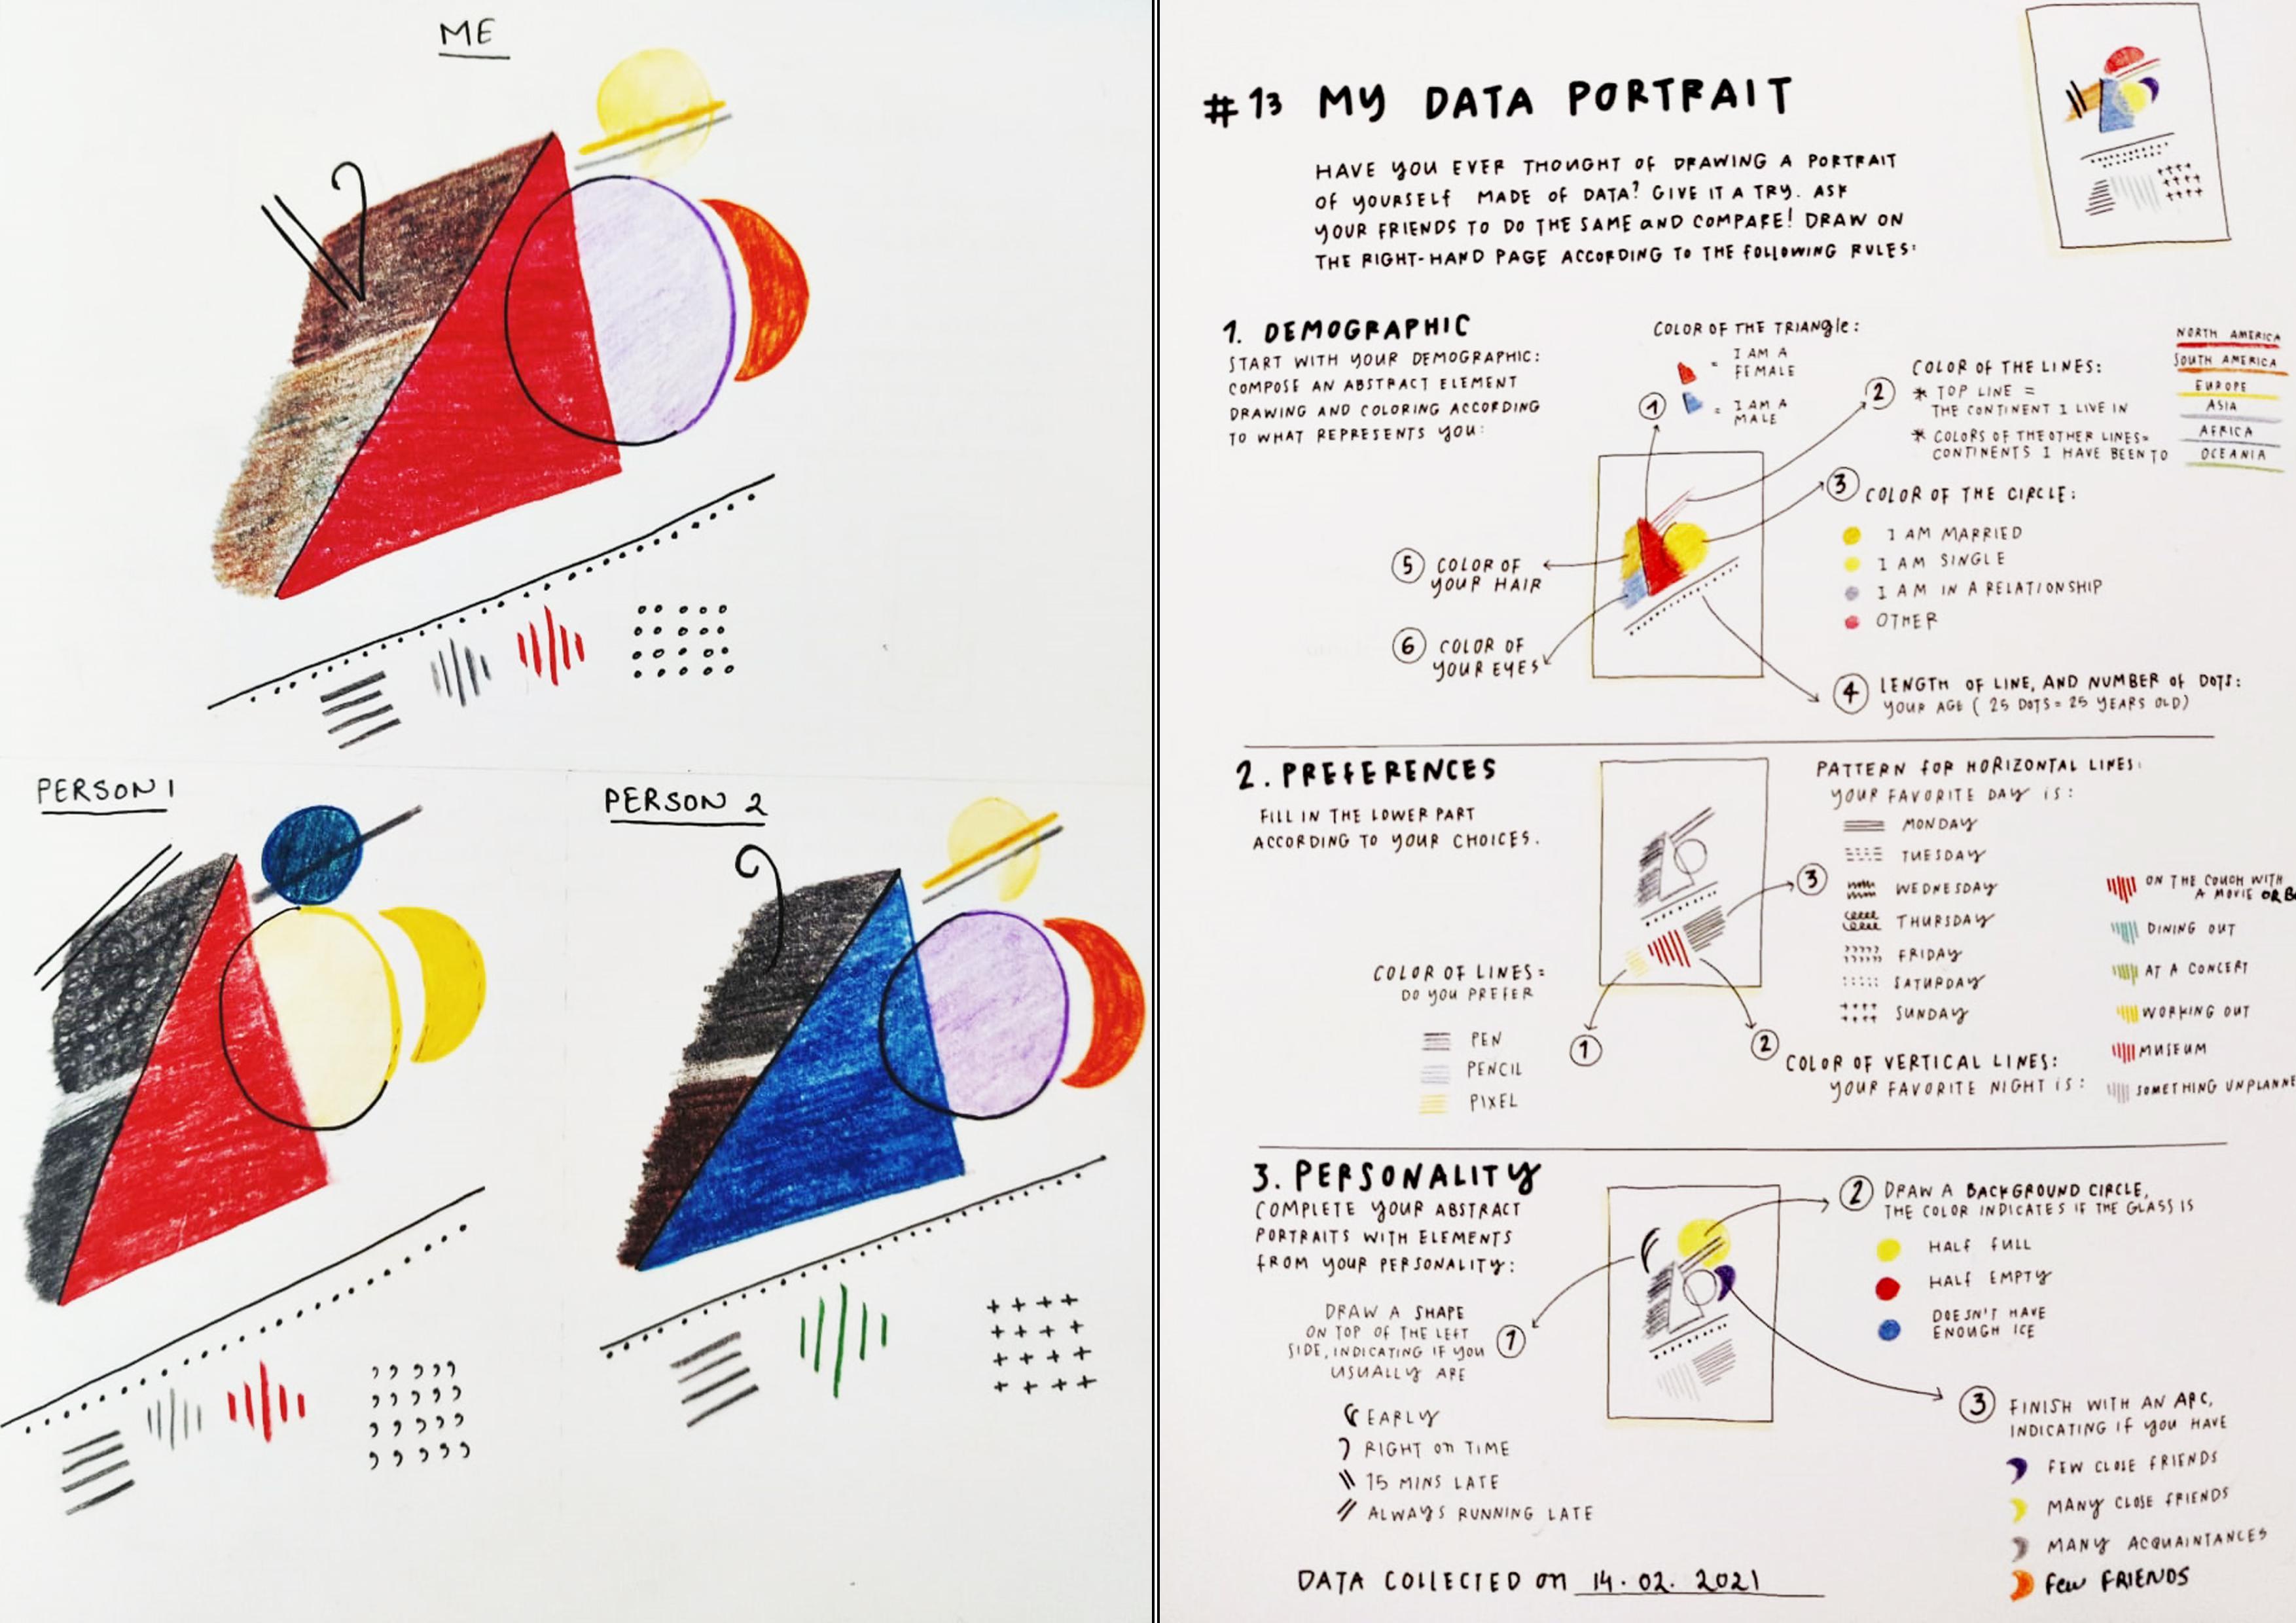 ME
PERSON 1
PERSON 2
#13 MY DATA PORTRAIT
HAVE YOU EVER THOUGHT OF DRAWING A PORTRAIT
OF YOURSELF MADE OF DATA? GIVE IT A TRY. ASK
YOUR FRIENDS TO DO THE SAME AND COMPARE! DRAW ON
THE RIGHT-HAND PAGE ACCORDING TO THE FOLLOWING RULES:
1. DEMOGRAPHIC
START WITH YOUR DEMOGRAPHIC:
COMPOSE AN ABSTRACT ELEMENT
DRAWING AND COLORING ACCORDING
TO WHAT REPRESENTS YOU:
COLOR OF THE TRIANGLE:
= I AM A
FEMALE
= I AM A
MALE
1
2
COLOR OF THE LINES:
* TOP LINE =
THE CONTINENT I LIVE IN
* COLORS OF THE OTHER LINES=
CONTINENTS I HAVE BEEN TO
NORTH AMERICA
SOUTH AMERICA
EUROPE
ASIA
AFRICA
OCEANIA
3 COLOR OF THE CIRCLE:
I AM MARRIED
I AM SINGLE
I AM IN A RELATIONSHIP
OTHER
5 COLOR OF
YOUR HAIR
6 COLOR OF
YOUR EYES
4 LENGTH OF LINE, AND NUMBER OF DOTS:
YOUR AGE ( 25 DOTS = 25 YEARS OLD)
2. PREFERENCES
FILL IN THE LOWER PART
ACCORDING TO YOUR CHOICES.
PATTERN FOR HORIZONTAL LINES:
YOUR FAVORITE DAY IS:
MONDAY
TUESDAY
WEDNESDAY
THURSDAY
FRIDAY
SATURDAY
SUNDAY
3
COLOR OF LINES=
DO YOU PREFER
PEN
PENCIL
PIXEL
1
2
COLOR OF VERTICAL LINES:
YOUR FAVORITE NIGHT IS:
ON THE COUCH WITH
A MOVIE OR
DINING OUT
AT A CONCERT
WORKING OUT
MUSEUM
SOMETHING UNPLANNE
3. PERSONALITY
COMPLETE YOUR ABSTRACT
PORTRAITS WITH ELEMENTS
FROM YOUR PERSONALITY:
DRAW A SHAPE
ON TOP OF THE LEFT
SIDE, INDICATING IF YOU
USUALLY ARE
1
EARLY
RIGHT ON TIME
15 MINS LATE
ALWAYS RUNNING LATE
2 DRAW A BACKGROUND CIRCLE,
THE COLOR INDICATES IF THE GLASS IS
HALF FULL
HALF EMPTY
DOESN'T HAVE
ENOUGH ICE
3 FINISH WITH AN ARC,
INDICATING IF YOU HAVE
FEW CLOSE FRIENDS
MANY CLOSE FRIENDS
MANY ACQUAINTANCES
FEW FRIENDS
DATA COLLECTED ON 14.02.2021